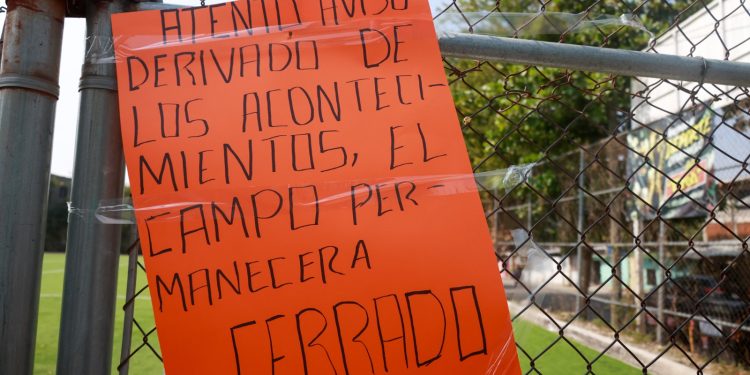 ATENTO AVISO
DERIVADO DE
LOS ACONTECI-
MIENTOS, EL
CAMPO PER-
MANECERA
CERRADO